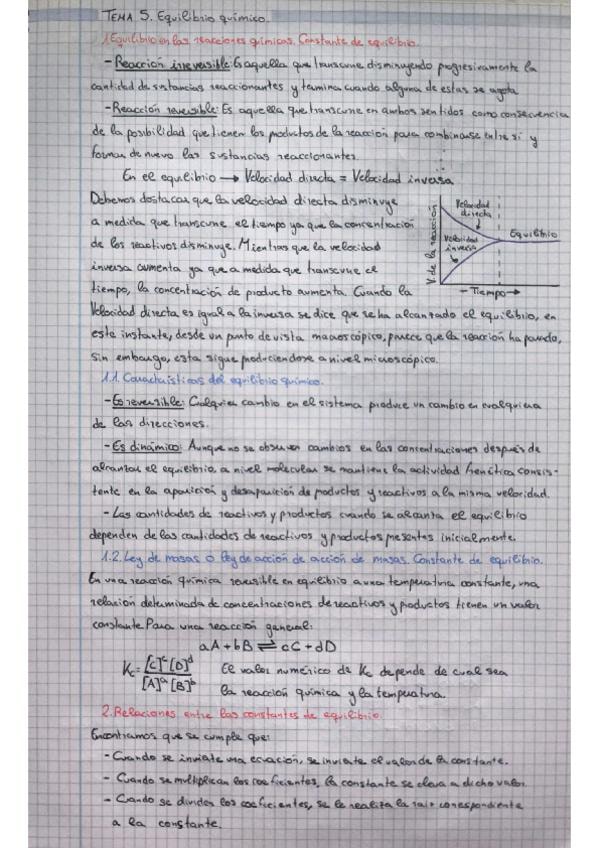 TEMA 5. Equilibrio químico.
1. Equilibrio en las reacciones químicas. Constante de equilibrio.
- Reacción irreversible: Es aquella que transcurre disminuyendo progresivamente la
cantidad de sustancias reaccionantes y termina cuando alguna de estas se agota
- Reacción reversible: Es aquella que transcurre en ambos sentidos como consecuencia
de la posibilidad que tienen los productos de la reacción para combinarse entre sí y
formar de nuevo las sustancias reaccionantes.
En el equilibrio → Velocidad directa = Velocidad inversa
Debemos destacar que la velocidad directa disminuye
a medida que transcurre el tiempo ya que la concentración
de los reactivos disminuye. Mientras que la velocidad
inversa aumenta ya que a medida que transcurre el
tiempo, la concentración de producto aumenta. Cuando la
V de la reacción
Velocidad
directa
Velocidad
inversa
Equilibrio
- Tiempo →
Velocidad directa es igual a la inversa se dice que se ha alcanzado el equilibrio, en
este instante, desde un punto de vista macroscópico, parece que la reacción ha parado,
sin embargo, esta sigue produciendose a nivel microscópico.
1.1. Características del equilibrio químico.
- Es reversible: Cualquier cambio en el sistema produce un cambio en cualquiera
de las direcciones.
- Es dinámico: Aunque no se observen cambios en las concentraciones después de
alcanzar el equilibrio, a nivel molecular se mantiene la actividad frenética consis-
tente en la aparición y desaparición de productos y reactivos a la misma velocidad.
- Las cantidades de reactivos y productos cuando se alcanza el equilibrio
dependen de las cantidades de reactivos y productos presentes inicialmente.
1.2. Ley de masas o ley de acción de acción de masas. Constante de equilibrio.
En una reacción química reversible en equilibrio a una temperatura constante, una
relación determinada de concentraciones de reactivos y productos tienen un valor
constante. Para una reacción general:
aA + bB ⇌ cC + dD
Kc = [C]^c [D]^d / [A]^a [B]^b El valor numérico de Kc depende de cual sea
la reacción química y la temperatura.
2. Relaciones entre las constantes de equilibrio.
Encontramos que se cumple que:
- Cuando se invierte una ecuación, se invierte el valor de la constante.
- Cuando se multiplican los coeficientes, la constante se eleva a dicho valor.
- Cuando se dividen los coeficientes, se le realiza la raíz correspondiente
a la constante.